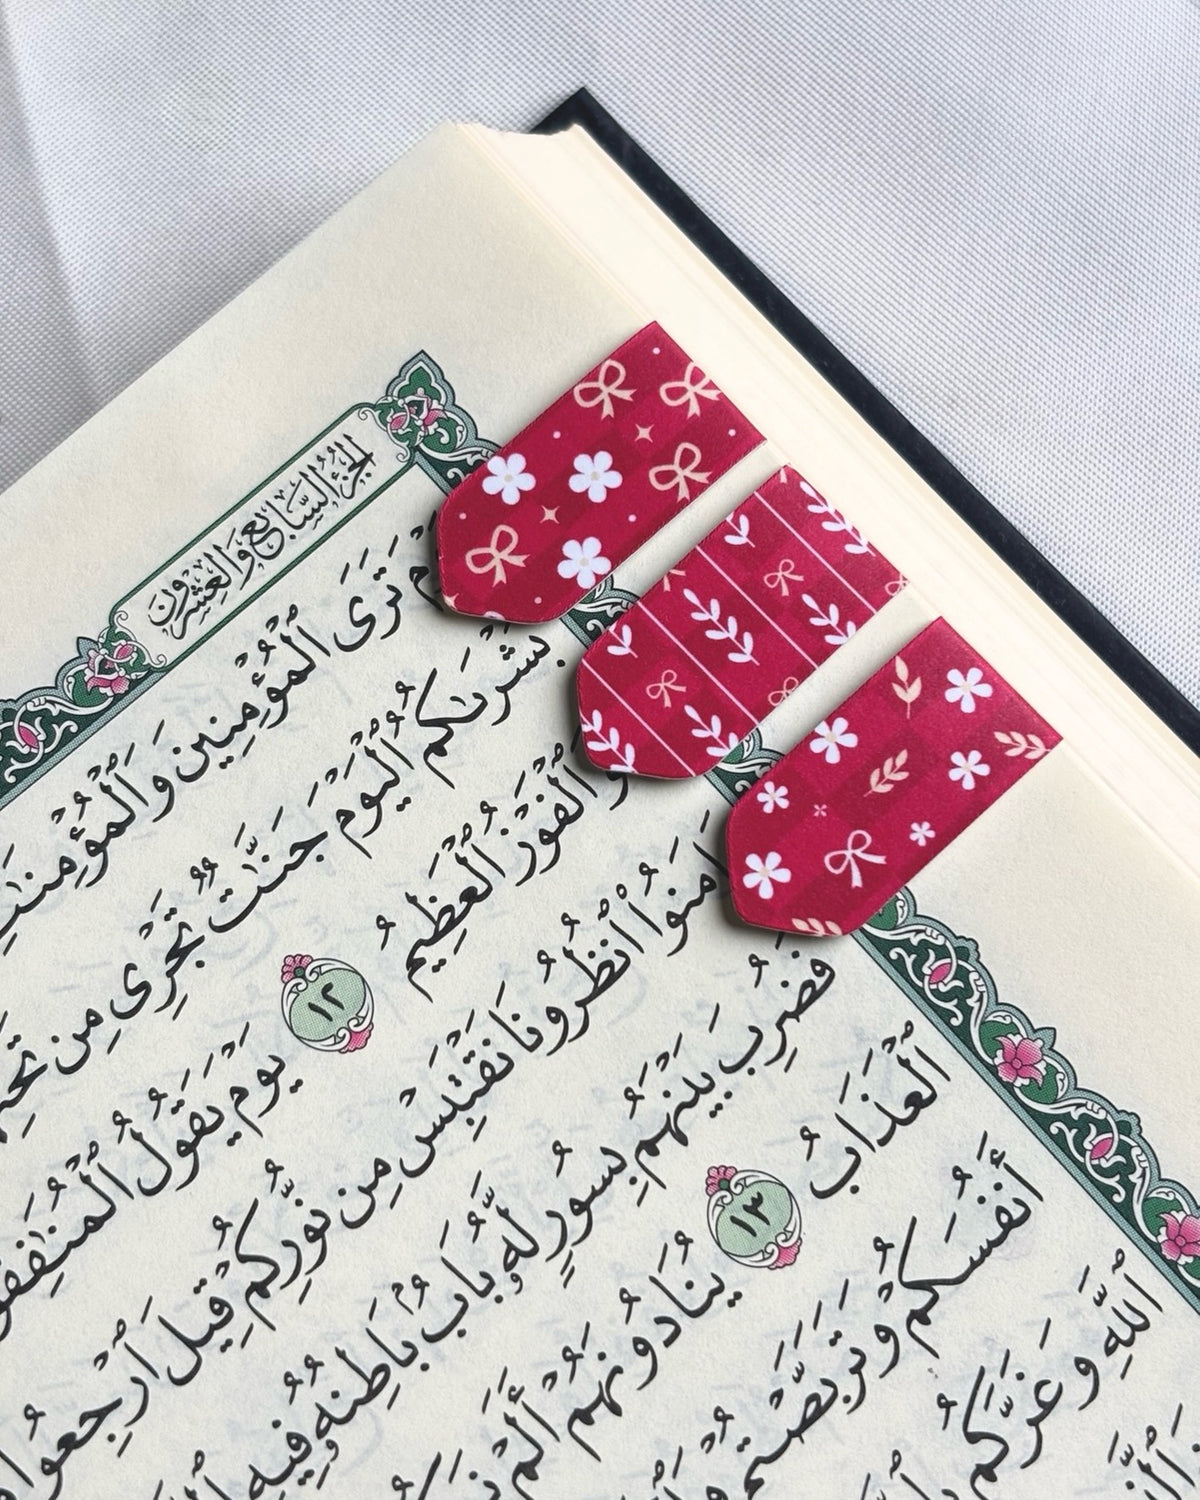 الجُزْءُ السَّابِعُ وَالعِشْرُونَ
تَرَى ٱلْمُؤْمِنِينَ وَٱلْمُؤْمِنَٰتِ
بُشْرَىٰكُمُ ٱلْيَوْمَ جَنَّٰتٌ تَجْرِى مِن
ٱلْفَوْزُ ٱلْعَظِيمُ ١٢ يَوْمَ يَقُولُ
ءَامَنُوا۟ ٱنظُرُونَا نَقْتَبِسْ مِن نُّورِكُمْ قِيلَ ٱرْجِعُوا۟
فَضُرِبَ بَيْنَهُم بِسُورٍ لَّهُۥ بَابٌۢ بَاطِنُهُۥ فِيهِ
ٱلْعَذَابُ ١٣ يُنَادُونَهُمْ أَلَمْ
أَنفُسَكُمْ وَتَرَبَّصْتُمْ
ٱللَّهِ وَغَرَّكُم